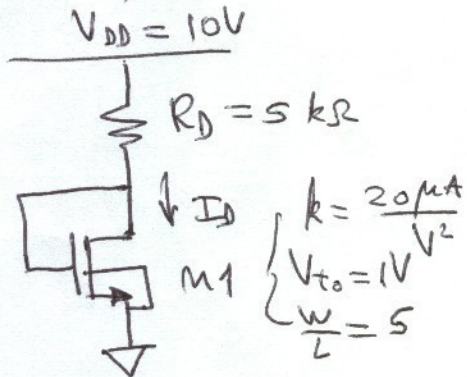 V_DD = 10V
R_D = 5 kΩ
↓ I_D
k = 20 μA / V²
M1
V_to = 1V
W/L = 5